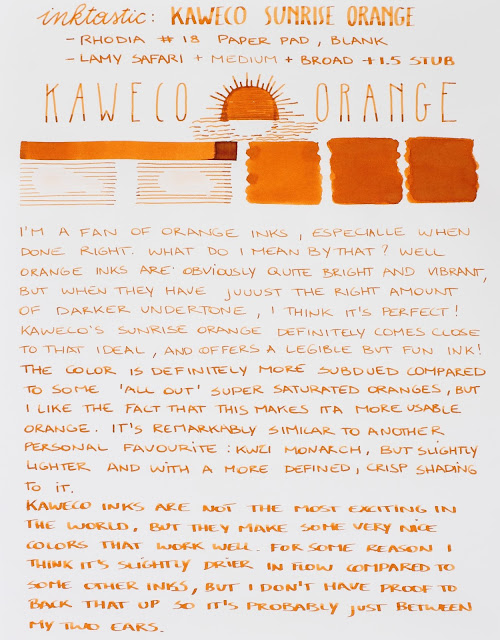 inktastic: KAWECO SUNRISE ORANGE
- RHODIA # 18 PAPER PAD, BLANK
- LAMY SAFARI + MEDIUM + BROAD + 1.5 STUB
KAWECO ORANGE
I'M A FAN OF ORANGE INKS, ESPECIALLE WHEN
DONE RIGHT. WHAT DO I MEAN BY THAT? WELL
ORANGE INKS ARE OBVIOUSLY QUITE BRIGHT AND VIBRANT,
BUT WHEN THEY HAVE JUUUST THE RIGHT AMOUNT
OF DARKER UNDERTONE, I THINK IT'S PERFECT!
KAWECO'S SUNRISE ORANGE DEFINITELY COMES CLOSE
TO THAT IDEAL, AND OFFERS A LEGIBLE BUT FUN INK!
THE COLOR IS DEFINITELY MORE SUBDUED COMPARED
TO SOME 'ALL OUT' SUPER SATURATED ORANGES, BUT
I LIKE THE FACT THAT THIS MAKES IT A MORE USABLE
ORANGE. IT'S REMARKABLY SIMILAR TO ANOTHER
PERSONAL FAVOURITE: KWZI MONARCH, BUT SLIGHTLY
LIGHTER AND WITH A MORE DEFINED, CRISP SHADING
TO IT.
KAWECO INKS ARE NOT THE MOST EXCITING IN
THE WORLD, BUT THEY MAKE SOME VERY NICE
COLORS THAT WORK WELL. FOR SOME REASON I
THINK IT'S SLIGHTLY DRIER IN FLOW COMPARED TO
SOME OTHER INKS, BUT I DON'T HAVE PROOF TO
BACK THAT UP SO IT'S PROBABLY JUST BETWEEN
MY TWO EARS.